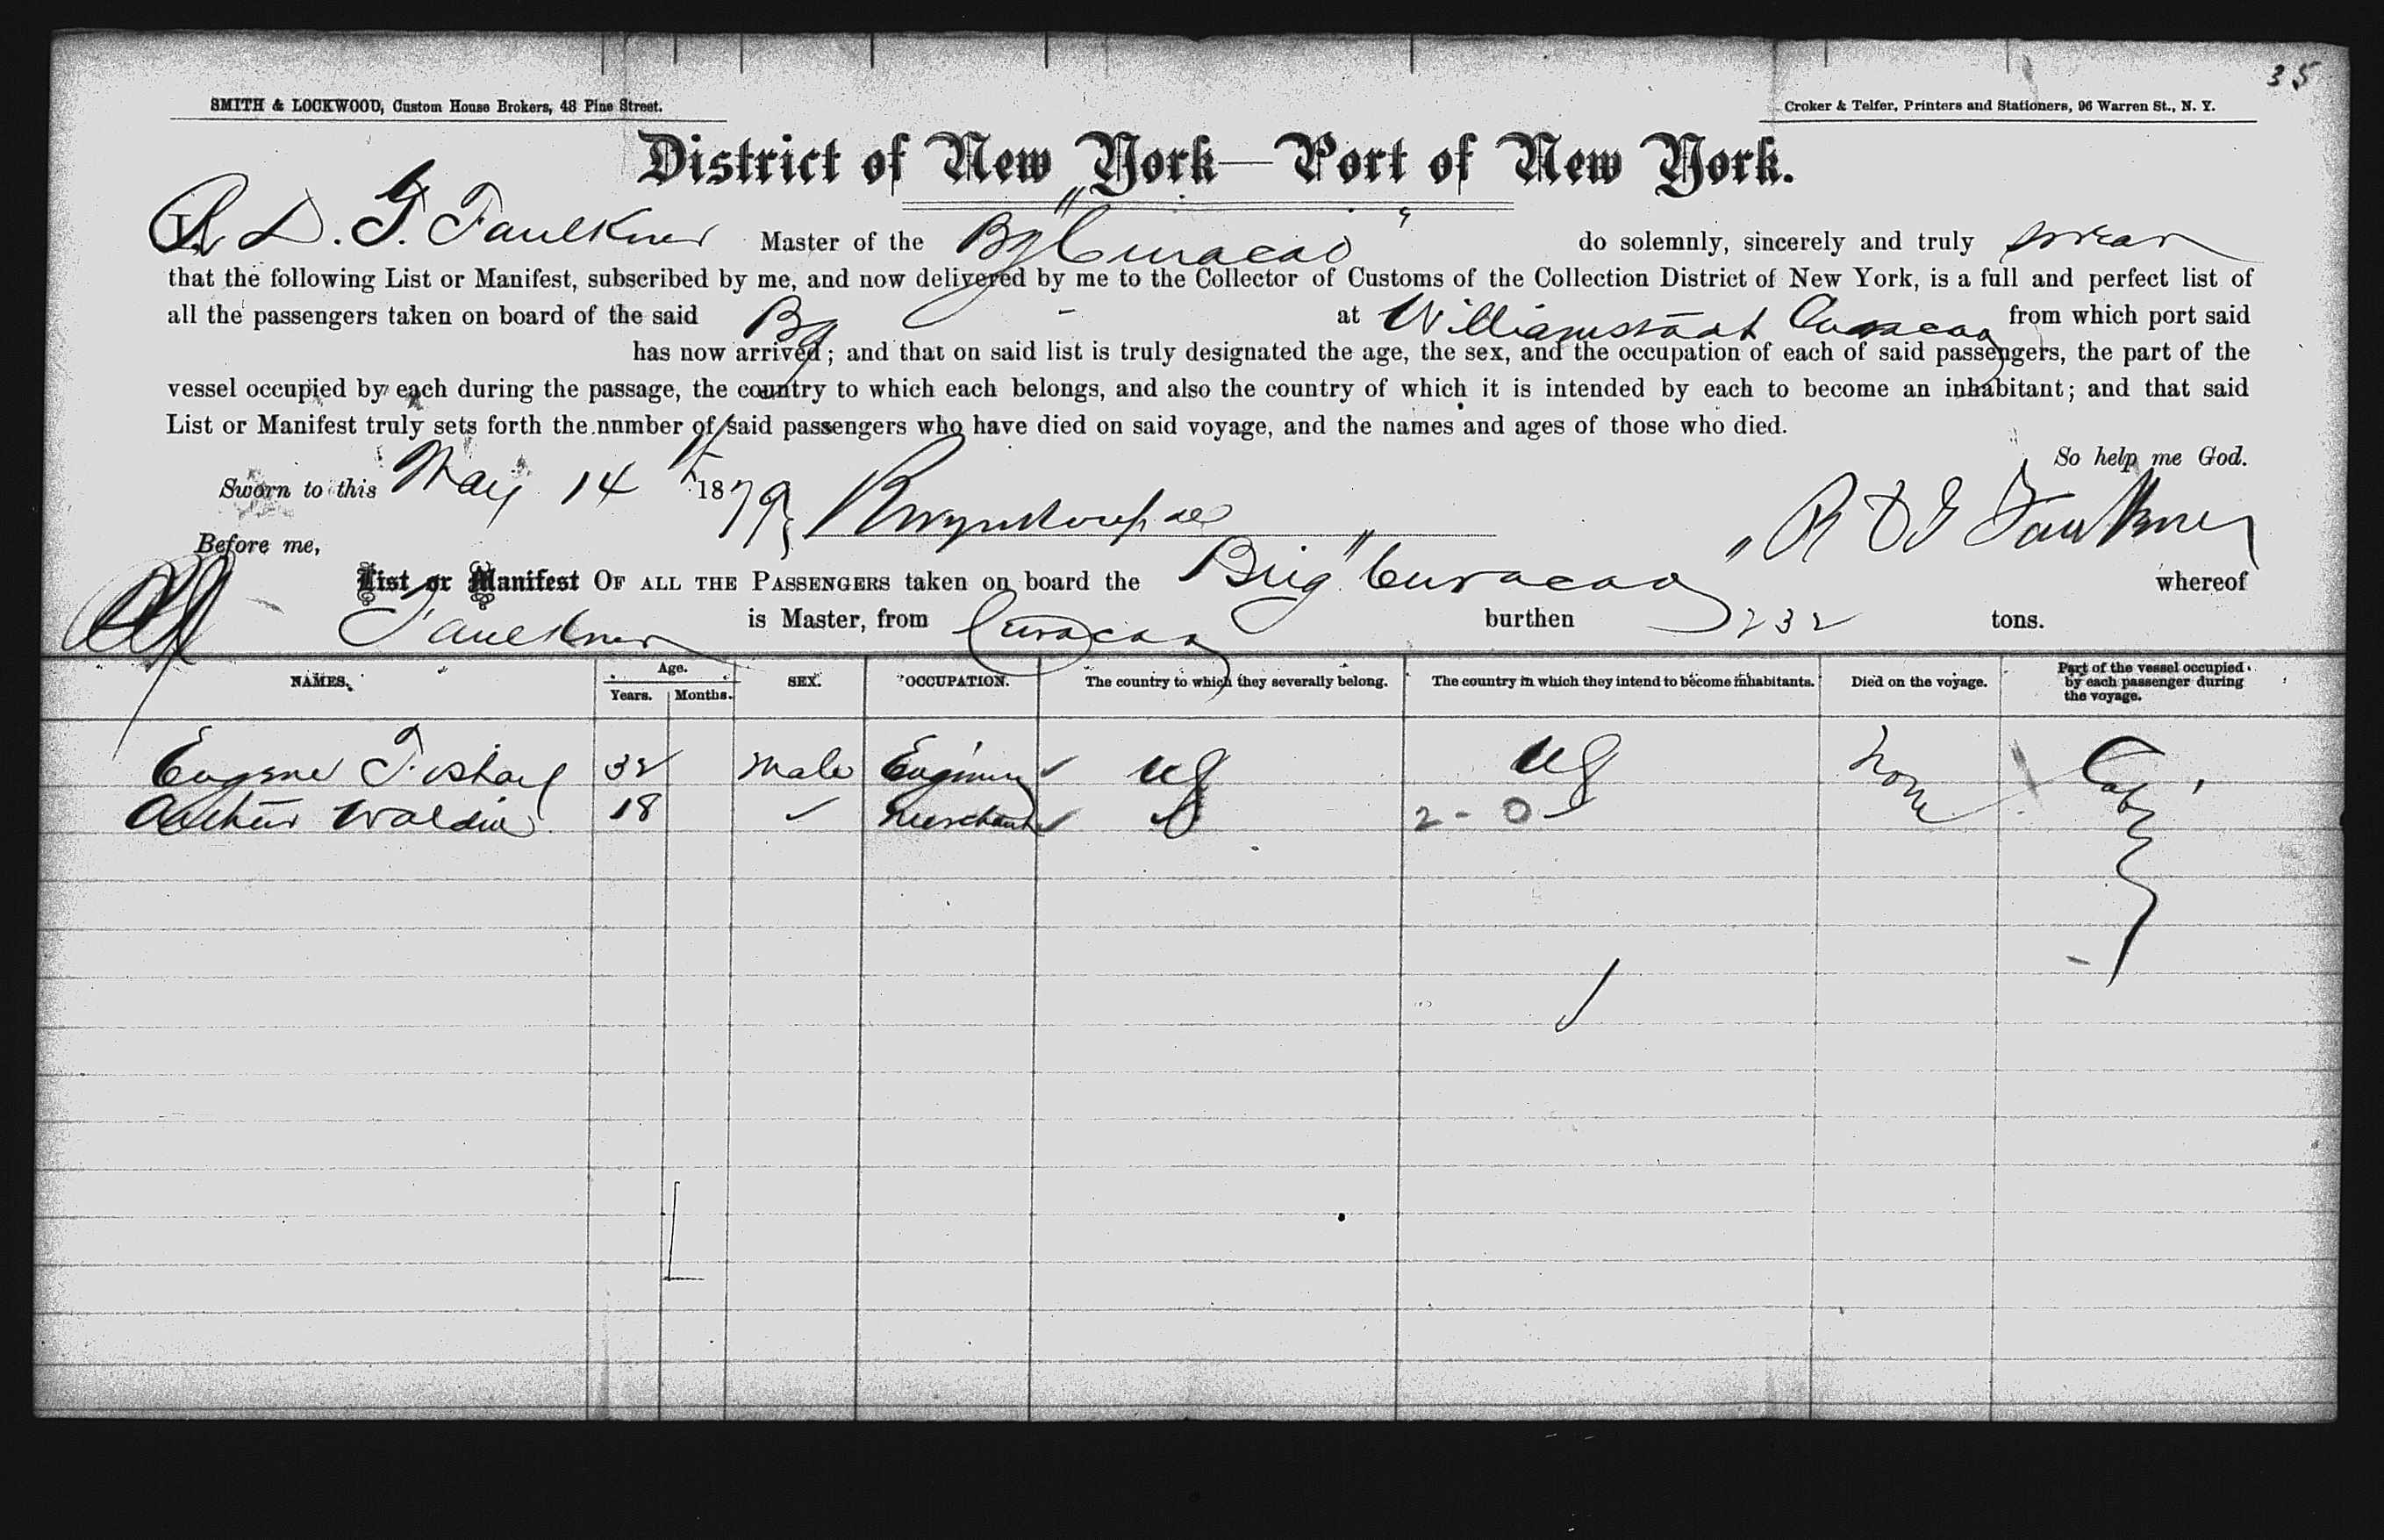 35
SMITH & LOCKWOOD, Custom House Brokers, 48 Pine Street.
Croker & Telfer, Printers and Stationers, 96 Warren St., N. Y.
District of New York—Port of New York.
I, R. D. G. Faulkner Master of the Bg "Curacao" do solemnly, sincerely and truly swear
that the following List or Manifest, subscribed by me, and now delivered by me to the Collector of Customs of the Collection District of New York, is a full and perfect list of
all the passengers taken on board of the said Bg at Williamstadt Curacao from which port said
has now arrived; and that on said list is truly designated the age, the sex, and the occupation of each of said passengers, the part of the
vessel occupied by each during the passage, the country to which each belongs, and also the country of which it is intended by each to become an inhabitant; and that said
List or Manifest truly sets forth the number of said passengers who have died on said voyage, and the names and ages of those who died.
So help me God.
Sworn to this May 14th 1879
R D G Faulkner
Before me,
List or Manifest OF ALL THE PASSENGERS taken on board the Brig "Curacao" whereof
Faulkner is Master, from Curacao burthen 232 tons.
NAMES. Age. Years. Months. SEX. OCCUPATION. The country to which they severally belong. The country in which they intend to become inhabitants. Died on the voyage. Part of the vessel occupied by each passenger during the voyage.
Eugene 32 Male Engineer US US None Cabin
Arthur 18 ✓ Merchant ✓ 2 - 0